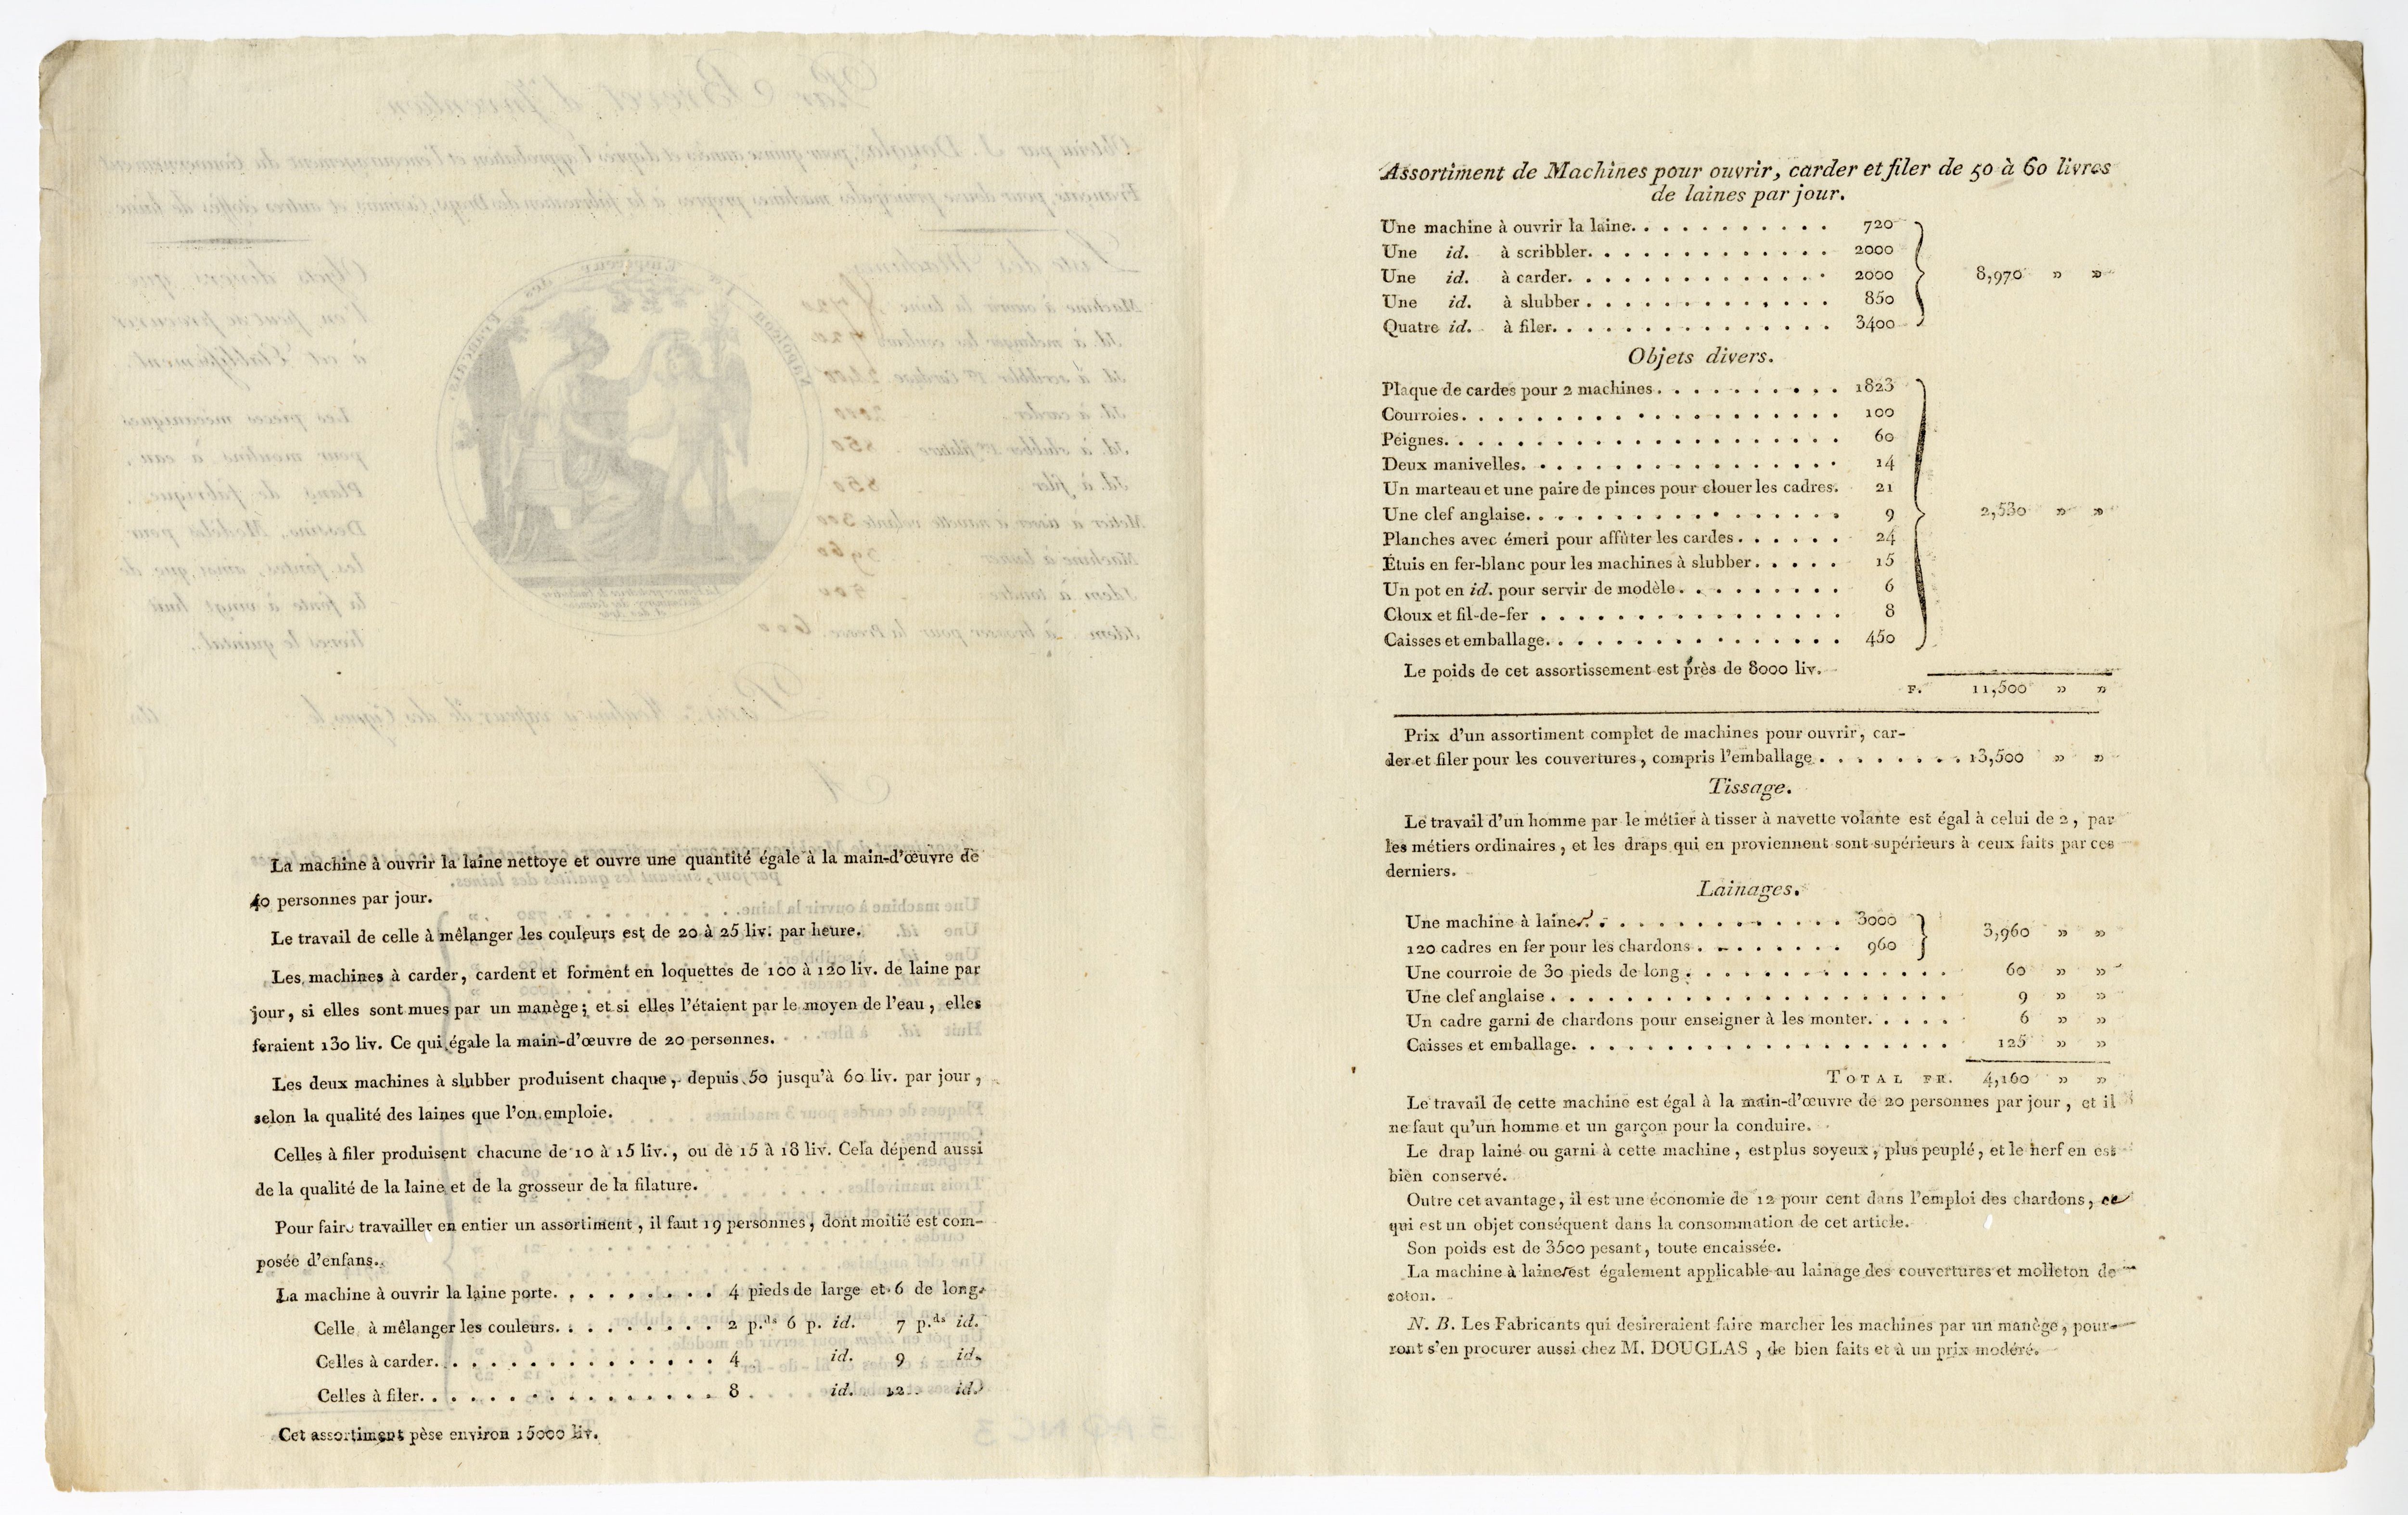 La machine à ouvrir la laine nettoye et ouvre une quantité égale à la main-d'œuvre de
40 personnes par jour.
Le travail de celle à mêlanger les couleurs est de 20 à 25 liv. par heure.
Les machines à carder, cardent et forment en loquettes de 100 à 120 liv. de laine par
jour, si elles sont mues par un manège; et si elles l'étaient par le moyen de l'eau, elles
feraient 130 liv. Ce qui égale la main-d'œuvre de 20 personnes.
Les deux machines à slubber produisent chaque, depuis 50 jusqu'à 60 liv. par jour,
selon la qualité des laines que l'on emploie.
Celles à filer produisent chacune de 10 à 15 liv., ou de 15 à 18 liv. Cela dépend aussi
de la qualité de la laine et de la grosseur de la filature.
Pour faire travailler en entier un assortiment, il faut 19 personnes, dont moitié est com-
posée d'enfans.
La machine à ouvrir la laine porte. . . . . . . . . 4 pieds de large et 6 de long.
Celle à mêlanger les couleurs. . . . . . . . . 2 p.ds 6 p. id. 7 p.ds id.
Celles à carder. . . . . . . . . . . . . . . 4 id. 9 id.
Celles à filer. . . . . . . . . . . . . . . . 8 id. 12 id.
Cet assortiment pèse environ 15000 liv.
Assortiment de Machines pour ouvrir, carder et filer de 50 à 60 livres
de laines par jour.
Une machine à ouvrir la laine. . . . . . . . . . 720
Une id. à scribbler. . . . . . . . . . . . . 2000
Une id. à carder. . . . . . . . . . . . . . 2000 8,970 » »
Une id. à slubber . . . . . . . . . . . . . 850
Quatre id. à filer. . . . . . . . . . . . . . 3400
Objets divers.
Plaque de cardes pour 2 machines. . . . . . . . . . 1823
Courroies. . . . . . . . . . . . . . . . . . . 100
Peignes. . . . . . . . . . . . . . . . . . . . 60
Deux manivelles. . . . . . . . . . . . . . . . 14
Un marteau et une paire de pinces pour clouer les cadres. 21
Une clef anglaise. . . . . . . . . . . . . . . . 9 2,530 » »
Planches avec émeri pour affûter les cardes . . . . . . 24
Étuis en fer-blanc pour les machines à slubber. . . . . 15
Un pot en id. pour servir de modèle. . . . . . . . . 6
Cloux et fil-de-fer . . . . . . . . . . . . . . . 8
Caisses et emballage. . . . . . . . . . . . . . . 450
Le poids de cet assortissement est près de 8000 liv.
F. 11,500 » »
Prix d'un assortiment complet de machines pour ouvrir, car-
der et filer pour les couvertures, compris l'emballage . . . . . . . . 13,500 » »
Tissage.
Le travail d'un homme par le métier à tisser à navette volante est égal à celui de 2, par
les métiers ordinaires, et les draps qui en proviennent sont supérieurs à ceux faits par ces
derniers.
Lainages.
Une machine à lainer. . . . . . . . . . . . . . 3000
3,960 » »
120 cadres en fer pour les chardons . . . . . . . . 960
Une courroie de 30 pieds de long . . . . . . . . . . . . . . 60 » »
Une clef anglaise . . . . . . . . . . . . . . . . . . . . 9 » »
Un cadre garni de chardons pour enseigner à les monter. . . . . 6 » »
Caisses et emballage. . . . . . . . . . . . . . . . . . . 125 » »
TOTAL FR. 4,160 » »
Le travail de cette machine est égal à la main-d'œuvre de 20 personnes par jour, et il
ne faut qu'un homme et un garçon pour la conduire.
Le drap lainé ou garni à cette machine, est plus soyeux, plus peuplé, et le nerf en est
bien conservé.
Outre cet avantage, il est une économie de 12 pour cent dans l'emploi des chardons, ce
qui est un objet conséquent dans la consommation de cet article.
Son poids est de 3500 pesant, toute encaissée.
La machine à lainer est également applicable au lainage des couvertures et molleton de
coton.
N. B. Les Fabricants qui desireraient faire marcher les machines par un manège, pour-
ront s'en procurer aussi chez M. DOUGLAS, de bien faits et à un prix modéré.